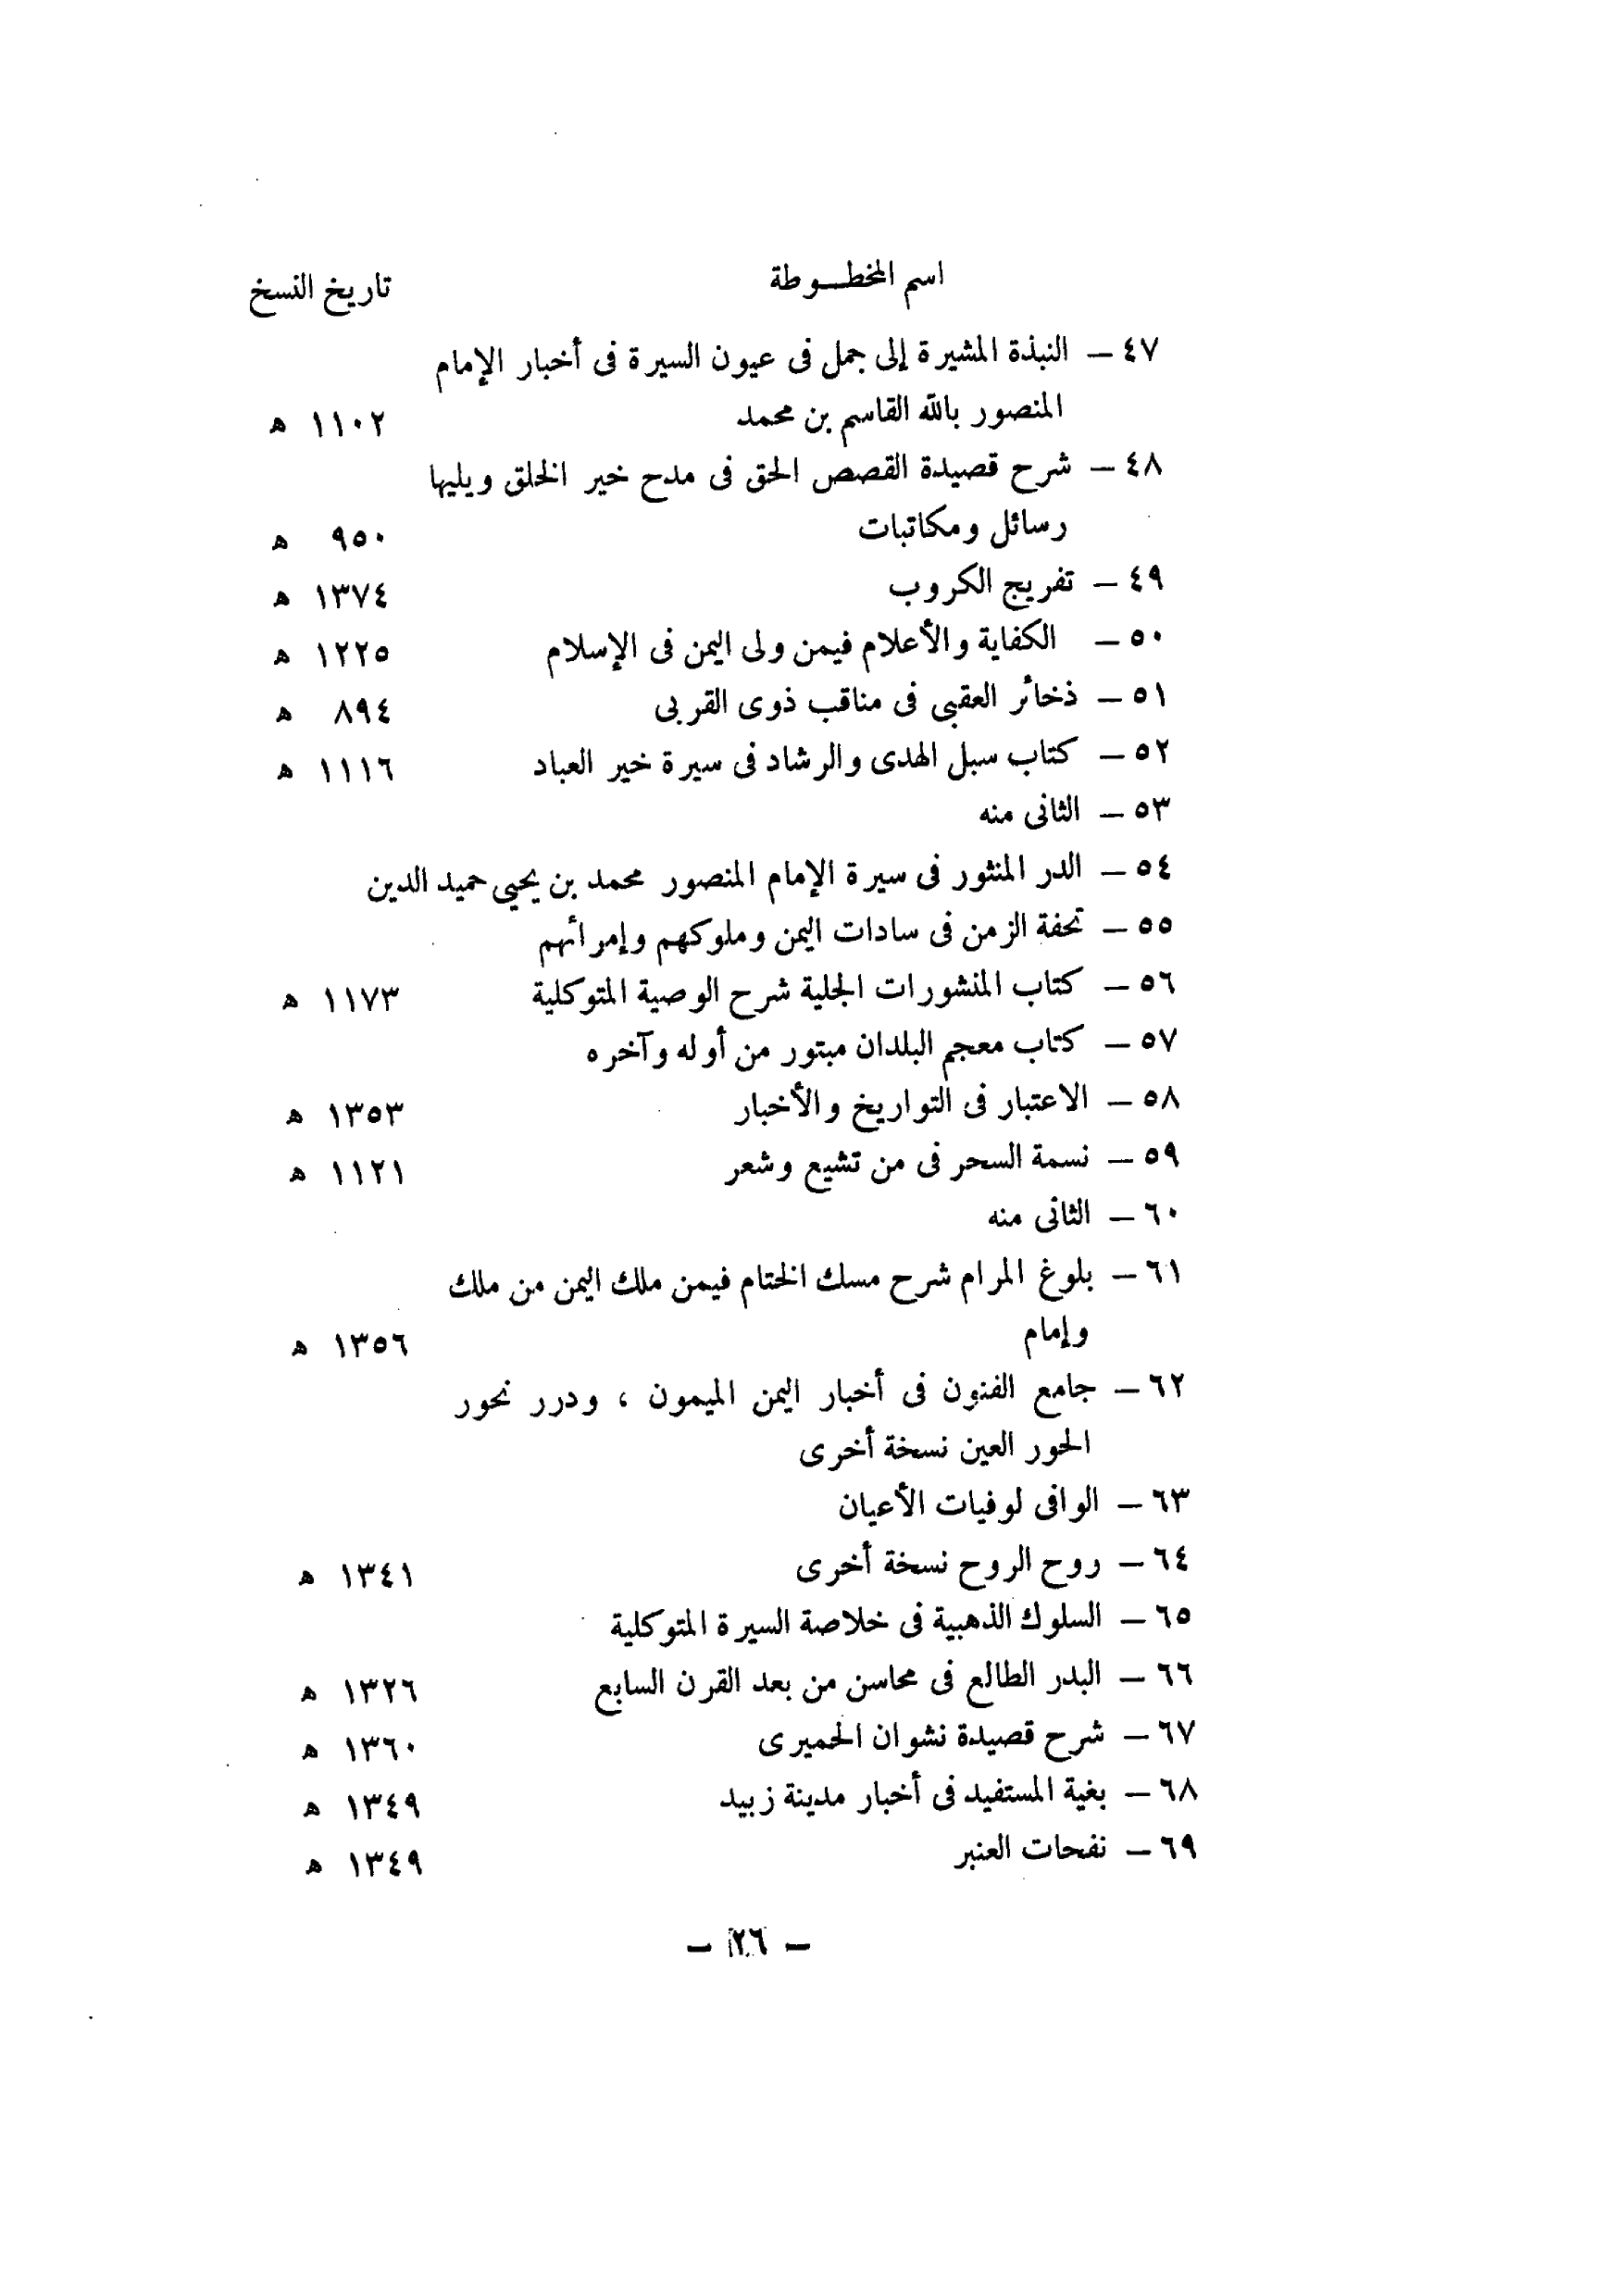 اسم المخطــوطة
تاريخ النسخ
٤٧ – النبذة المشيرة إلى جمل فى عيون السيرة فى أخبار الإمام
المنصور بالله القاسم بن محمد ١١٠٢ ه
٤٨ – شرح قصيدة القصص الحق فى مدح خير الخلق ويليها
رسائل ومكاتبات ٩٥٠ ه
٤٩ – تفريج الكروب ١٣٧٤ ه
٥٠ – الكفاية والأعلام فيمن ولى اليمن فى الإسلام ١٢٢٥ ه
٥١ – ذخائر العقبى فى مناقب ذوى القربى ٨٩٤ ه
٥٢ – كتاب سبل الهدى والرشاد فى سيرة خير العباد ١١١٦ ه
٥٣ – الثانى منه
٥٤ – الدر المنثور فى سيرة الإمام المنصور محمد بن يحيى حميد الدين
٥٥ – تحفة الزمن فى سادات اليمن وملوكهم وإمرائهم
٥٦ – كتاب المنشورات الجلية شرح الوصية المتوكلية ١١٧٣ ه
٥٧ – كتاب معجم البلدان مبتور من أوله وآخره
٥٨ – الاعتبار فى التواريخ والأخبار ١٣٥٣ ه
٥٩ – نسمة السحر فى من تشيع وشعر ١١٢١ ه
٦٠ – الثانى منه
٦١ – بلوغ المرام شرح مسك الختام فيمن ملك اليمن من ملك
وإمام ١٣٥٦ ه
٦٢ – جامع الفنون فى أخبار اليمن الميمون ، ودرر نحور
الحور العين نسخة أخرى
٦٣ – الوافى لوفيات الأعيان
٦٤ – روح الروح نسخة أخرى ١٣٤١ ه
٦٥ – السلوك الذهبية فى خلاصة السيرة المتوكلية
٦٦ – البدر الطالع فى محاسن من بعد القرن السابع ١٣٢٦ ه
٦٧ – شرح قصيدة نشوان الحميرى ١٣٦٠ ه
٦٨ – بغية المستفيد فى أخبار مدينة زبيد ١٣٤٩ ه
٦٩ – نفحات العنبر ١٣٤٩ ه
– ٢٦ –